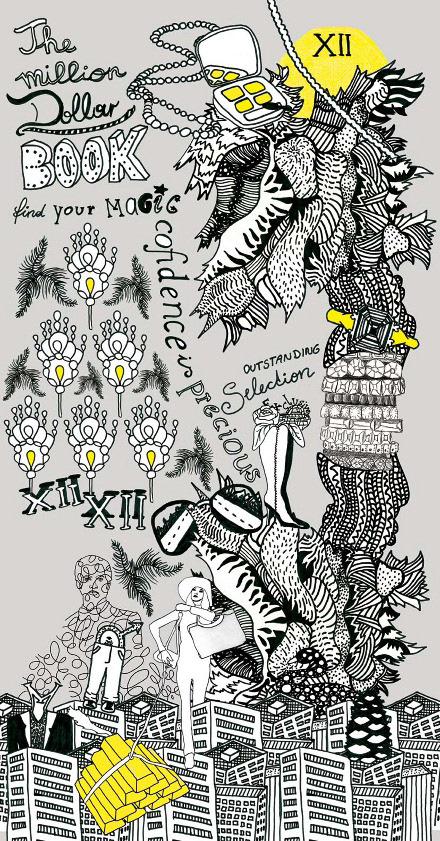 The
million
Dollar
BOOK
find your MAGIC
cofidence is precious
OUTSTANDING
Selection
XII
XII
XII